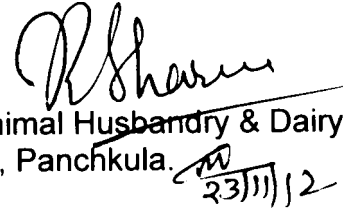 RSharma
nimal Husbandry & Dairy
, Panchkula.
23/11/12